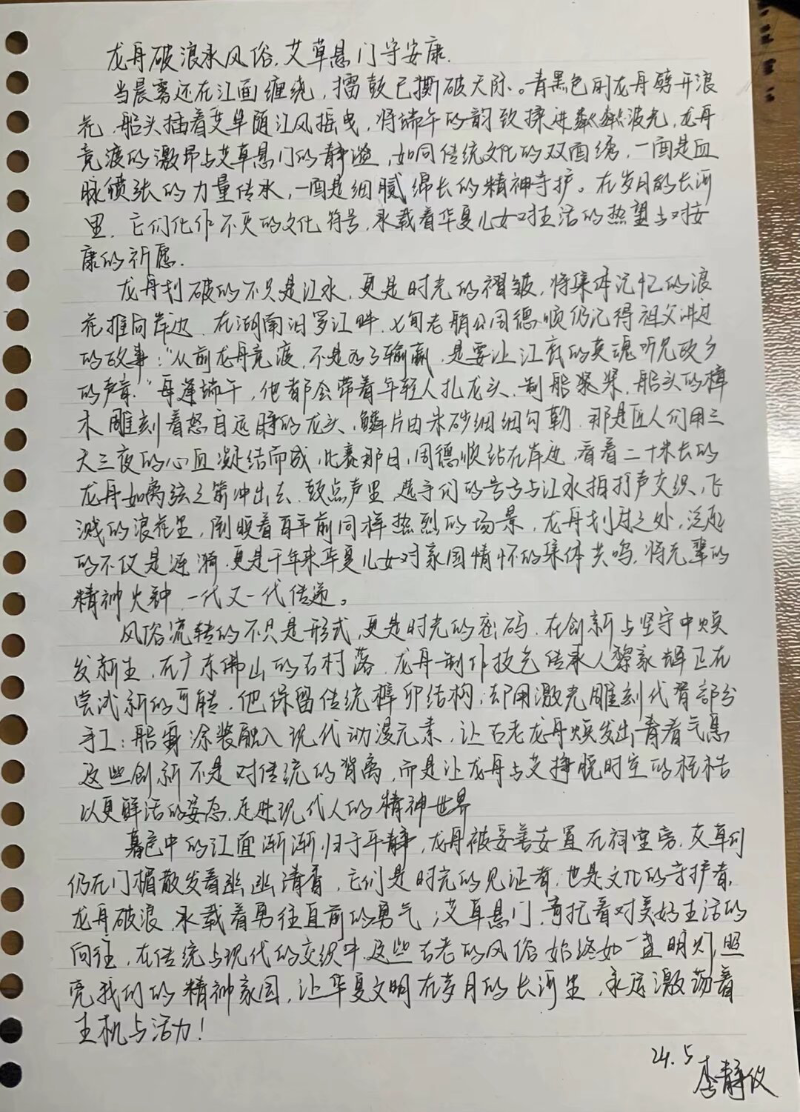 龙舟破浪承风俗,艾草悬门守安康.
当晨雾还在江面缠绕,擂鼓已撕破天际。青黑色的龙舟劈开浪
花,船头插着艾草随江风摇曳,将端午的韵致揉进粼粼波光,龙舟
竞渡的激昂与艾草悬门的静谧,如同传统文化的双面绣,一面是血
脉偾张的力量传承,一面是细腻绵长的精神守护。在岁月的长河
里,它们化作不灭的文化符号,承载着华夏儿女对生活的热望与对安
康的祈愿.
龙舟划破的不只是江水,更是时光的褶皱,将集体记忆的浪
花推向岸边.在湖南汨罗江畔,七旬老艄公周德顺仍记得祖父讲过
的故事:“从前龙舟竞渡,不是为了输赢,是要让江底的英魂听见故乡
的声音.”每逢端午,他都会带着年轻人扎龙头,制船桨,船头的樟
木雕刻着怒目远睁的龙头,鳞片由朱砂细细勾勒.那是匠人们用三
天三夜的心血凝结而成,比赛那日,周德顺站在岸边,看着二十米长的
龙舟如离弦之箭冲出去.鼓点声里,选手们的号子与江水拍打声交织,飞
溅的浪花里,倒映着百年前同样热烈的场景,龙舟划过之处,泛起
的不仅是涟漪,更是千年来华夏儿女对家国情怀的集体共鸣,将先辈的
精神火种,一代又一代传递。
风俗流转的不只是形式,更是时光的密码.在创新与坚守中焕
发新生,在广东佛山的古村落,龙舟制作技艺传承人黎家辉正在
尝试新的可能,他保留传统榫卯结构,却用激光雕刻代替部分
手工;船身涂装融入现代动漫元素,让古老龙舟焕发出青春气息
这些创新不是对传统的背离,而是让龙舟与艾挣脱时空的桎梏
以更鲜活的姿态,走进现代人的精神世界
暮色中的江面渐渐归于平静,龙舟被妥善安置在祠堂旁,艾草们
仍在门楣散发着幽幽清香,它们是时光的见证者,也是文化的守护者,
龙舟破浪,承载着勇往直前的勇气;艾草悬门,寄托着对美好生活的
向往,在传统与现代的交织中,这些古老的风俗始终如一盏明灯,照
亮我们的精神家园,让华夏文明在岁月的长河里,永远激荡着
生机与活力!
24.5
李静仪